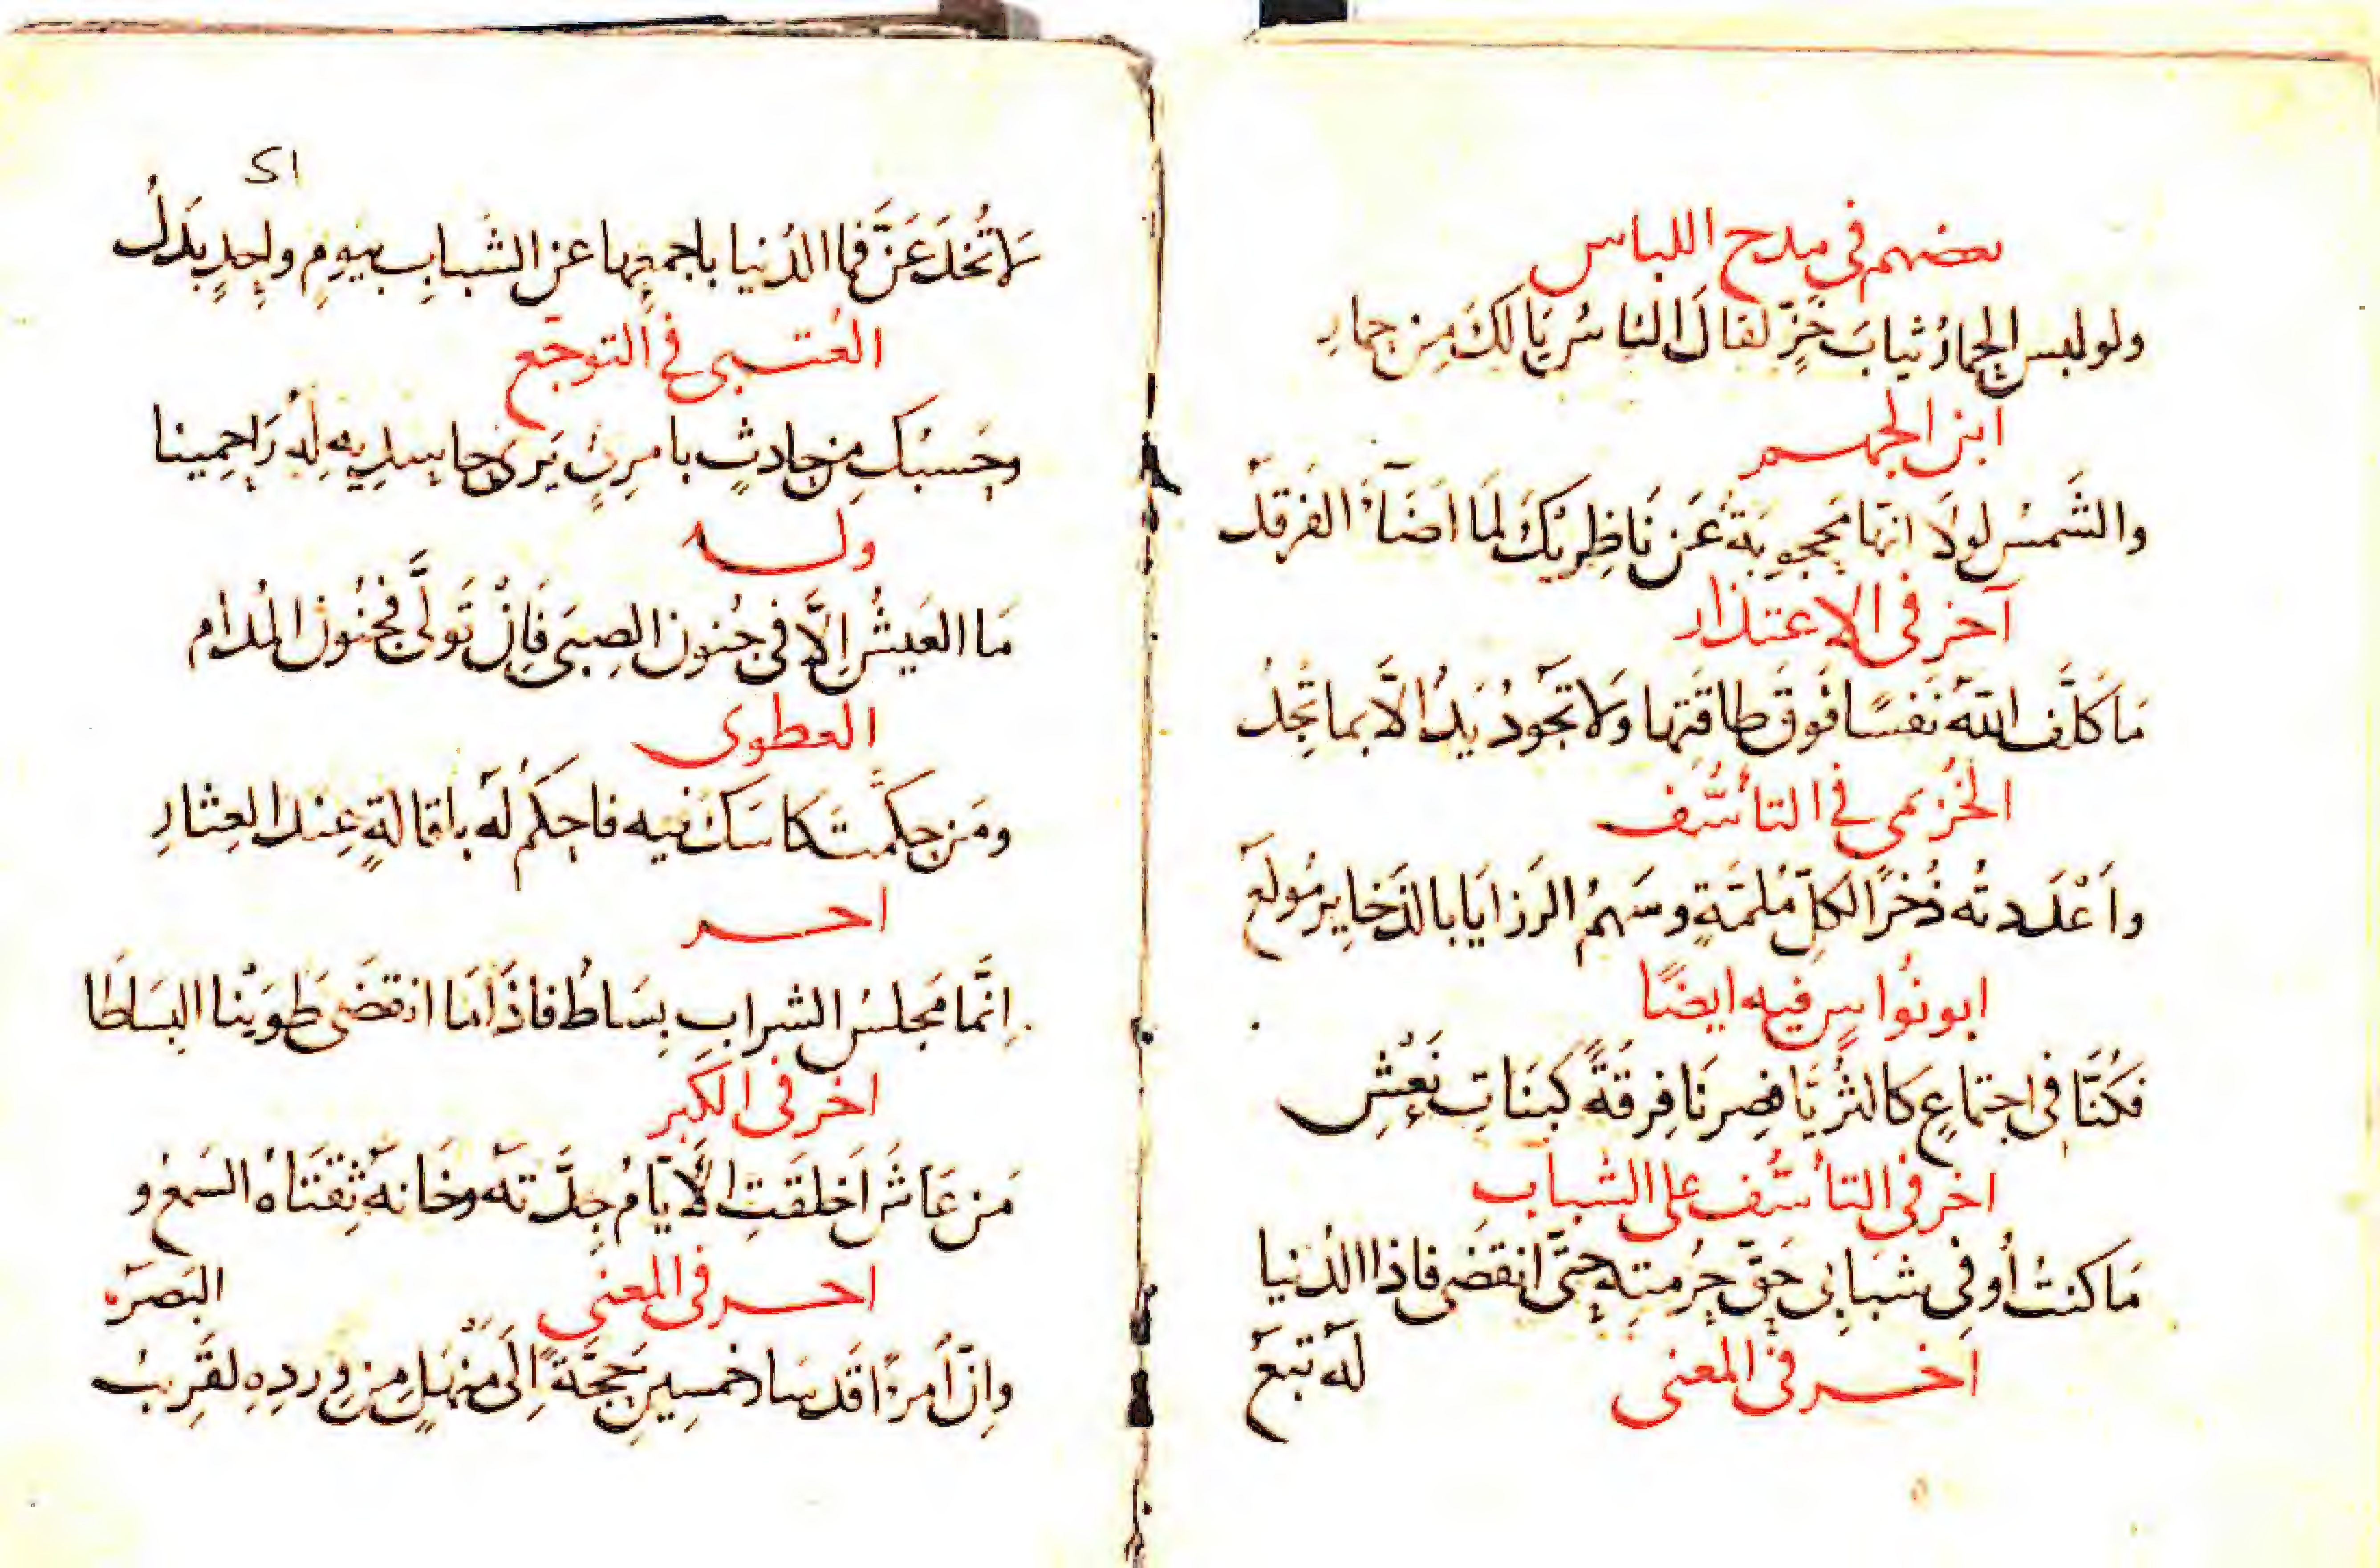 بعضهم في مدح اللباس
ولو لبس الحمارُ ثيابَ خَزٍّ لقالَ الناسُ يَا لَكَ مِن حمارِ
ابن الجهم
والشَمسُ لولَا انّها مَحجوبَةٌ عَن نَاظِرَيكَ لَمَا اضَآءَ الفَرقدُ
آخر في الاعتذار
مَا كلَّف اللهُ نَفسًا فَوقَ طاقَتِها وَلا تَجُودُ يَدٌ الَّا بما تَجِدُ
الخُزيمى في التأسُّف
واَعْدَدتُه ذُخرًا لكلِّ مُلمَّةٍ وسَهمُ الرَزايَا بالذَخايِر مُولَعُ
ابو نُواسٍ فيه ايضًا
فكُنَّا في اجتماعٍ كالثُريَّا فصِرنَا فِرقَةً كبَنَاتِ نَعْشِ
اخر في التأسُّف على الشباب
مَا كنتُ أُوفي شبَابِى حَقّ حُرمتِهِ حتَّى انقضَى فاذا الدُنيا
لَهُ تبَعُ
اخر في المعنى
٢١
لَا تُخدَعَنَّ فما الدُنيا باجمعِها عن الشَبابِ بيَومٍ واحِدٍ بدَلُ
العُتبى في التوجّع
وحَسبُكِ مِن حادثٍ بامرِئٍ يَرىَ حاسدِيهِ لهُ رَاحِمينا
وله
مَا العَيشُ اِلَّا في جُنون الصِبَى فَاِنْ تَولَّى فجُنُون المُدام
العطوى
ومَن حكَّمتَ كاسَكَ فيه فاحكُم لَه باقالةٍ عِندَ العِثارِ
اخر
اِنَّما مَجلسُ الشرابِ بِسَاطٌ فاذَا مَا انقضَى طَوَينا البِسَاطَا
اخر في الكِبَر
مَن عَاشَ اَخلَقَتِ الَأيَّامُ جِدَّتَه وخَانهُ ثِقَتَاهُ السَمعُ و
البَصَرُ
اخر في المعنى
وانّ اَمرءًا قَد سَار خمسِينَ حجَّةً اِلَى مَنْهَلٍ مِن وِردِهِ لقَرِيبُ